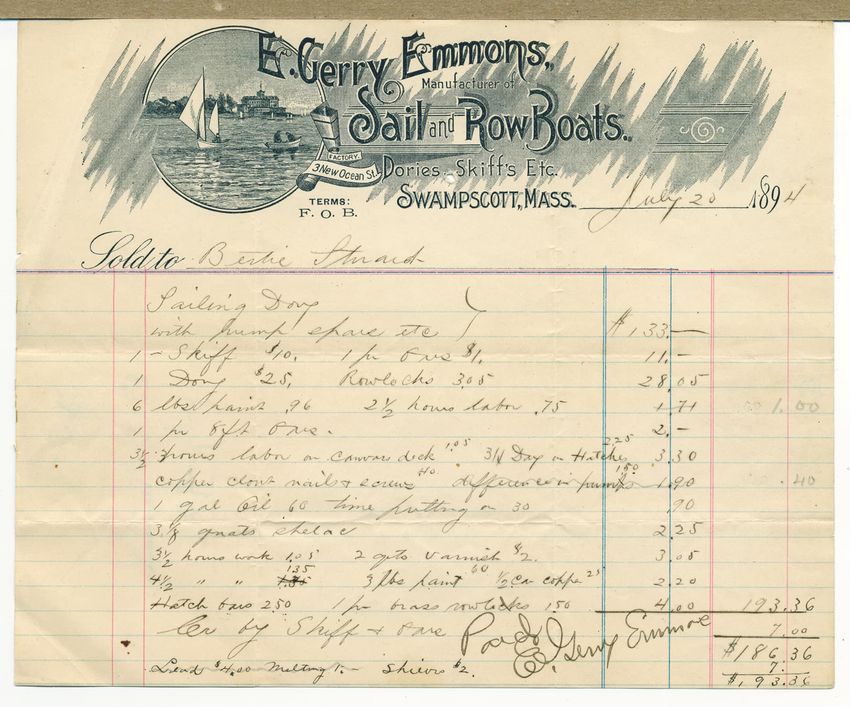 E. Gerry Emmons,
Manufacturer of
Sail and Row Boats.
FACTORY.
3 New Ocean St.
Dories, Skiff's Etc.
TERMS:
F. O. B.
SWAMPSCOTT, MASS. July 20 1894
Sold to Bertie Stuard
Sailing Dory
with pump spars etc $133.—
1 – Skiff $10. 1 pr Oars $1. 11.–
1 Dory $25. Rowlocks 3.05 28.05
6 lbs paint .96 2 1/2 hours labor .75 1.71 1.00
1 pr 8ft Oars. 2.–
3 1/2 hours labor on canvas deck 1.05 3/4 Day on Hatches 2.25 3.30
copper clout nails & screws 40 difference in pumps 1.50 1.90 .40
1 gal Oil 60 time putting on 30 .90
3 1/8 quats shelac 2.25
3 1/2 hours work 1.05 2 qts varnish $2. 3.05
4 1/2 " " 1.35 3 lbs paint 60 1/2 can copper 25 2.20
Hatch bars 2.50 1 pr brass rowlocks 1.50 4.00 193.36
Cr by Skiff & Oars 7.00
Paid E. Gerry Emmons
$186.36
7.
Lead $4.00 Melting 1. $2. $193.36